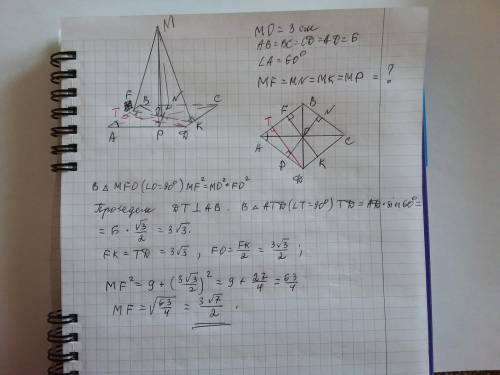 M
MO = 3 см
AB=BC=CD=AD=6
∠A=60°
MF=MN=MK=MP = ?
F B N C
T O
A P D K
B
F N
T
A O C
P K
D
В △ MFO (∠O=90°) MF²=MO²+FO²
Проведем DT⊥AB. В △ATD (∠T=90°) TD=AD·sin60°=
= 6 · √3/2 = 3√3.
FK=TD=3√3, FO=FK/2 = 3√3/2 ;
MF² = 9 + (3√3/2)² = 9 + 27/4 = 63/4
MF = √63/4 = 3√7/2 .